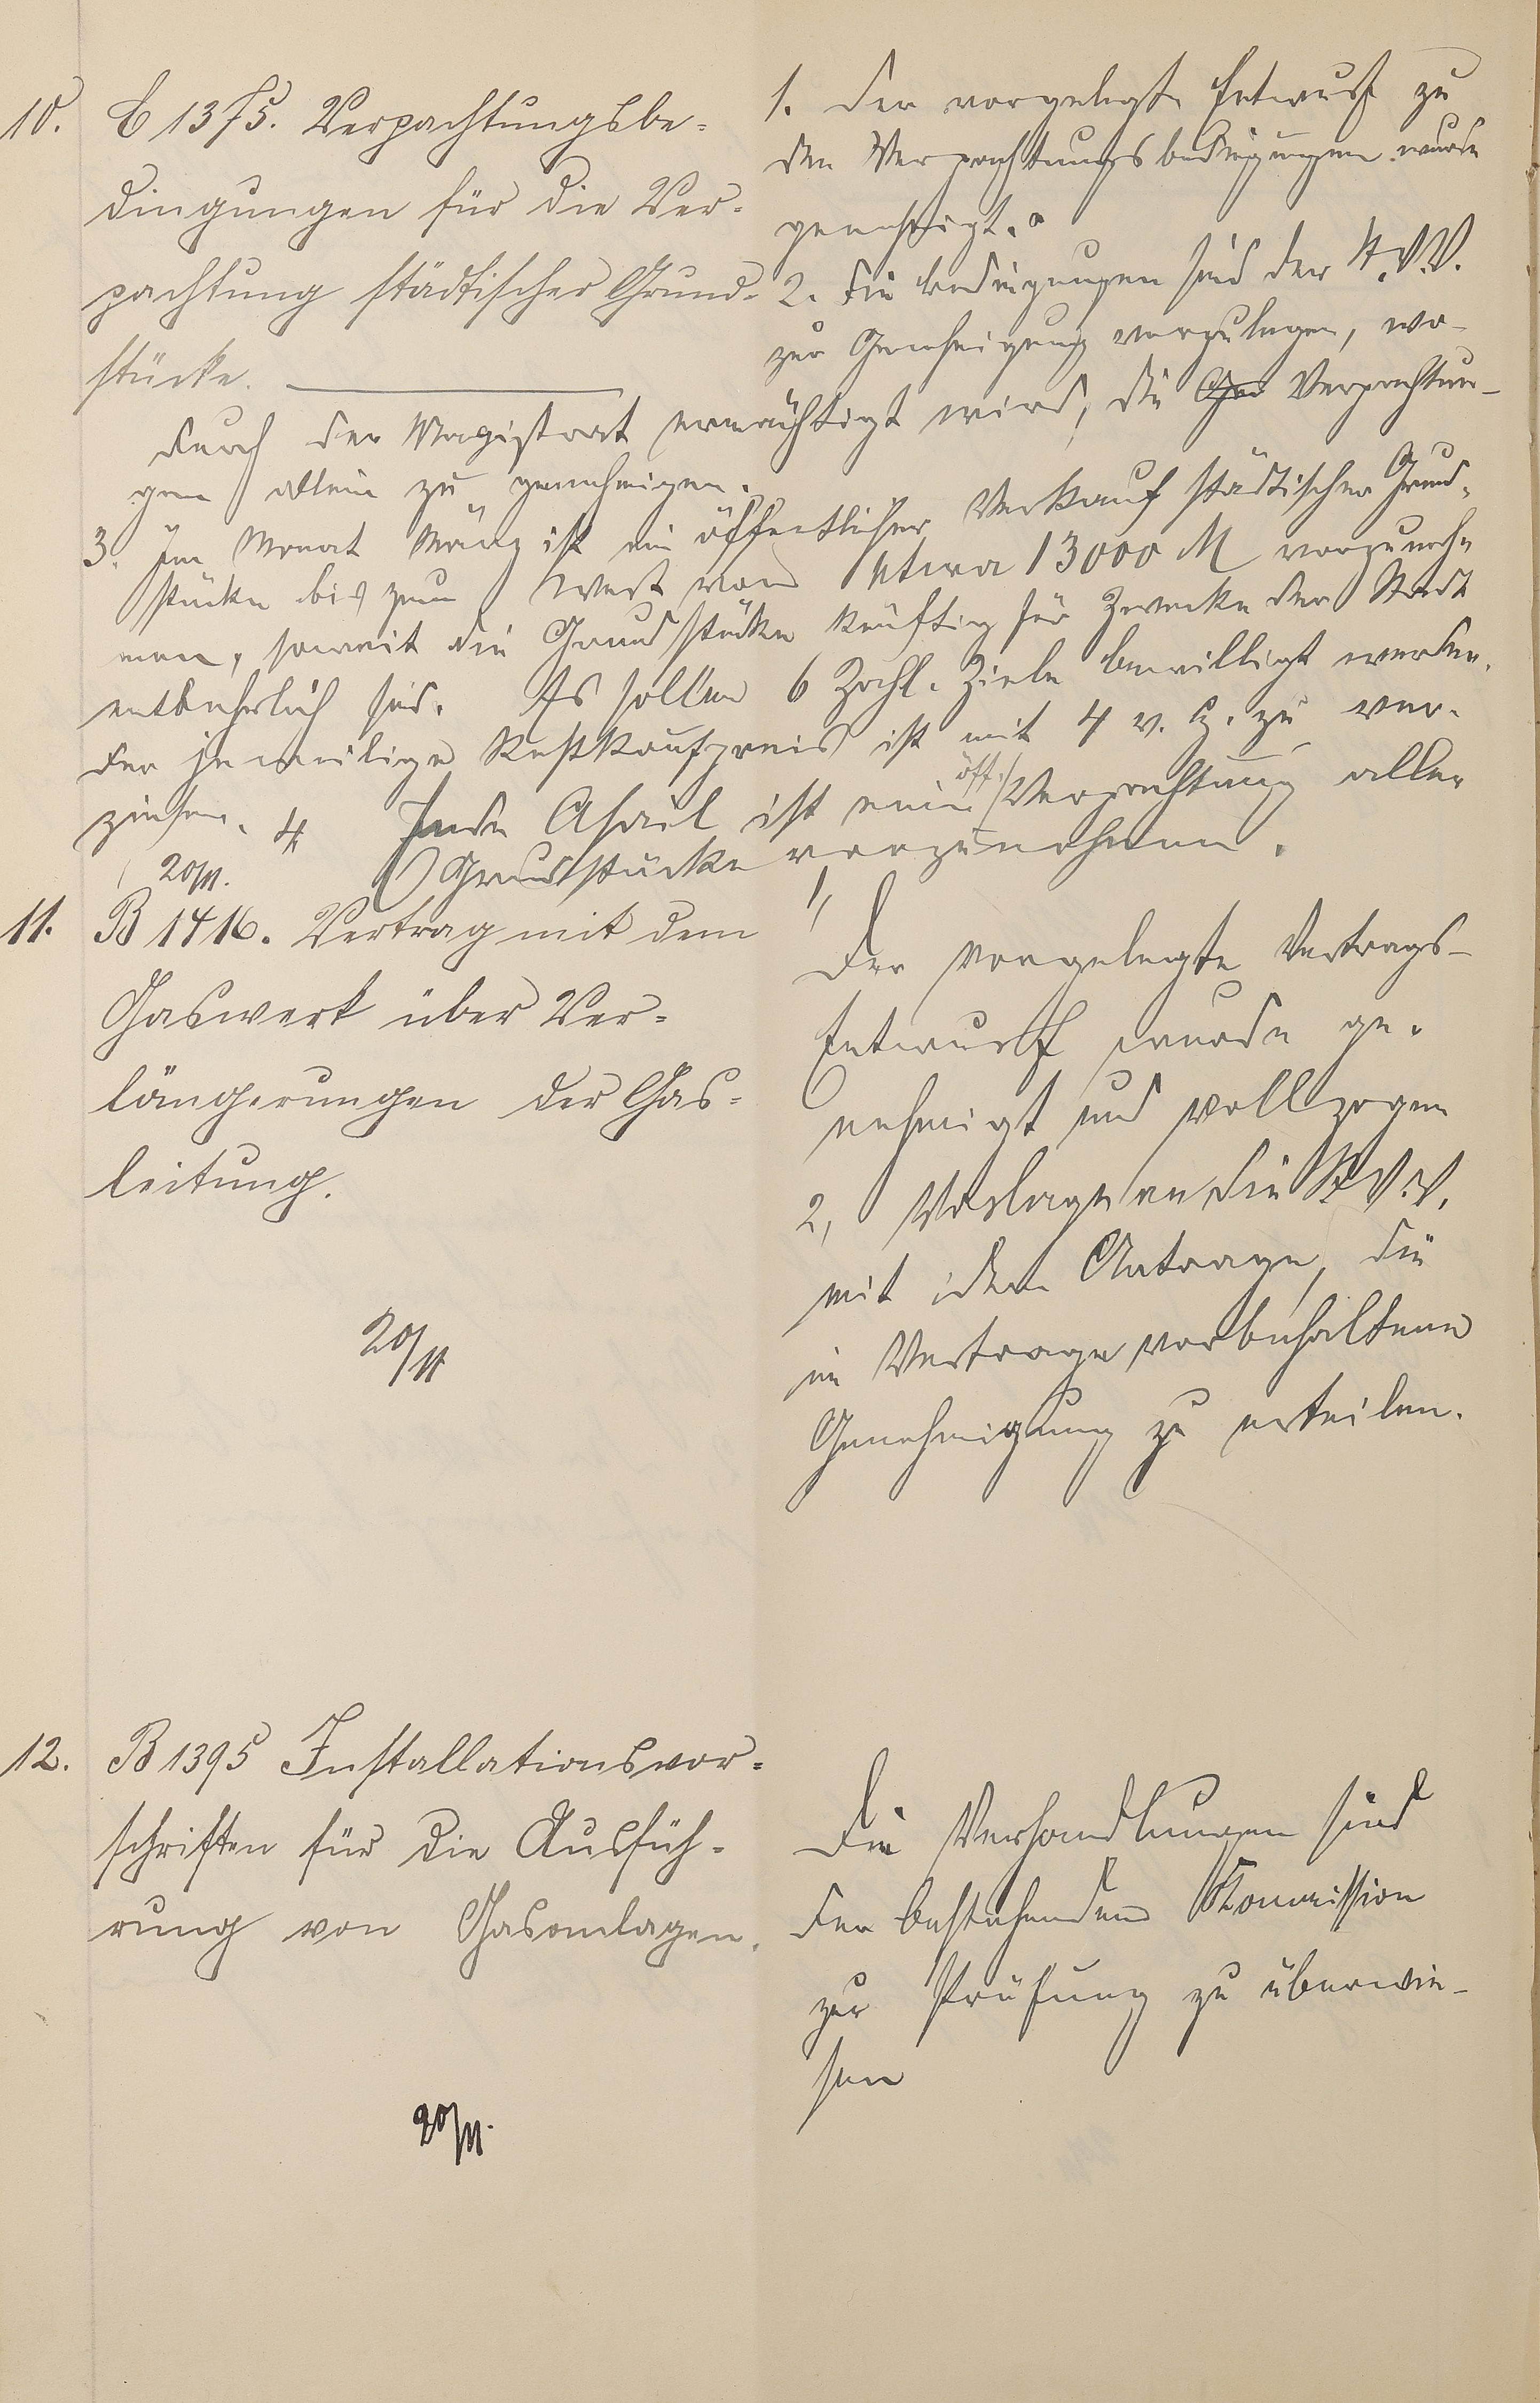 10. C 1375. Verpachtungsbe-
dingungen für die Ver-
pachtung städtischer Grund-
stücke.
1. Der vorgelegte Entwurf zu
den Verpachtungsbedingungen wurde
genehmigt.
2. Die Bedingungen sind der St.V.V.
zur Genehmigung vorzulegen, wo-
durch der Magistrat ermächtigt wird, die Verpachtun-
gen allein zu genehmigen.
3. Im Monat März ist ein öffentlicher Verkauf städtischer Grund-
stücke bis zum Wert von etwa 13000 M vorzuneh-
men, soweit die Grundstücke künftig für Zwecke der Stadt
entbehrlich sind. Es sollen 6 Zahl. Ziele bewilligt werden.
Der jeweilige Restkaufpreis ist mit 4 v. H. zu ver-
zinsen. 4 Ende April ist eine öff. Verpachtung aller
Grundstücke vorzunehmen.
20/11.
11. B 1416. Vertrag mit dem
Gaswerk über Ver-
längerungen der Gas-
leitung.
20/11
1,
Der vorgelegte Vertrags-
Entwurf wurde ge-
nehmigt und vollzogen
2, Vorlage an die St.V.V.
mit dem Antrage, die
im Vertrage vorbehaltene
Genehmigung zu erteilen.
12. B 1395 Installationsvor-
schriften für die Ausfüh-
rung von Gasanlagen.
20/11.
Die Verhandlungen sind
der bestehenden Kommission
zur Prüfung zu überwei-
sen